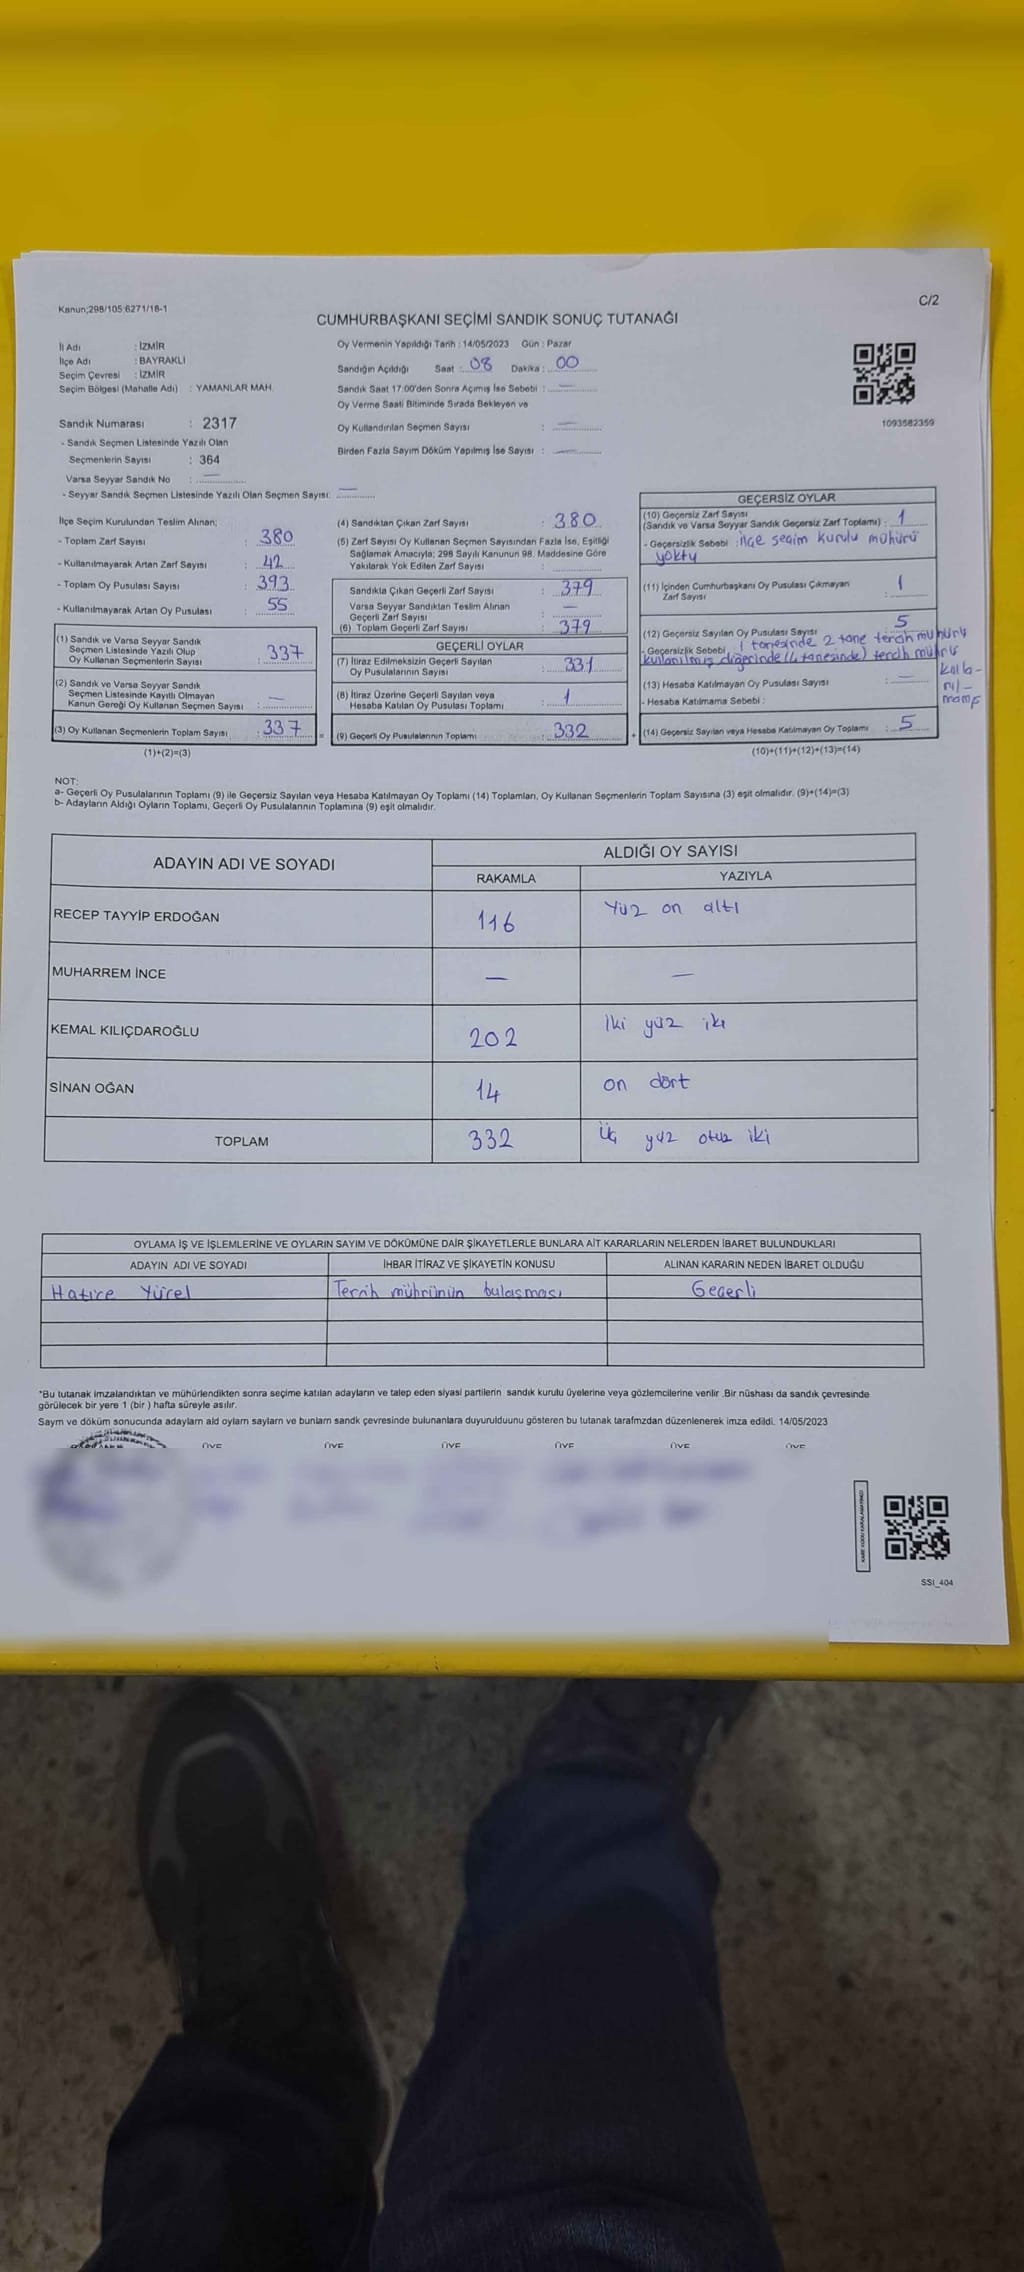 Kanun;298/105:6271/18-1
C/2
CUMHURBAŞKANI SEÇİMİ SANDIK SONUÇ TUTANAĞI
İl Adı : İZMİR
İlçe Adı : BAYRAKLI
Seçim Çevresi : İZMİR
Seçim Bölgesi (Mahalle Adı) : YAMANLAR MAH.
Sandık Numarası : 2317
- Sandık Seçmen Listesinde Yazılı Olan
Seçmenlerin Sayısı : 364
Varsa Seyyar Sandık No : —
- Seyyar Sandık Seçmen Listesinde Yazılı Olan Seçmen Sayısı: —
Oy Vermenin Yapıldığı Tarih : 14/05/2023 Gün : Pazar
Sandığın Açıldığı Saat : 08 Dakika : 00
Sandık Saat 17:00'den Sonra Açımış İse Sebebi : —
Oy Verme Saati Bitiminde Sırada Bekleyen ve
Oy Kullandırılan Seçmen Sayısı : —
Birden Fazla Sayım Döküm Yapılmış İse Sayısı : —
1093582359
İlçe Seçim Kurulundan Teslim Alınan;
- Toplam Zarf Sayısı : 380
- Kullanılmayarak Artan Zarf Sayısı : 42
- Toplam Oy Pusulası Sayısı : 393
- Kullanılmayarak Artan Oy Pusulası : 55
(1) Sandık ve Varsa Seyyar Sandık
Seçmen Listesinde Yazılı Olup
Oy Kullanan Seçmenlerin Sayısı : 337
(2) Sandık ve Varsa Seyyar Sandık
Seçmen Listesinde Kayıtlı Olmayan
Kanun Gereği Oy Kullanan Seçmen Sayısı : —
(3) Oy Kullanan Seçmenlerin Toplam Sayısı : 337 =
(1)+(2)=(3)
(4) Sandıktan Çıkan Zarf Sayısı : 380
(5) Zarf Sayısı Oy Kullanan Seçmen Sayısından Fazla İse, Eşitliği
Sağlamak Amacıyla; 298 Sayılı Kanunun 98. Maddesine Göre
Yakılarak Yok Edilen Zarf Sayısı :
Sandıkta Çıkan Geçerli Zarf Sayısı : 379
Varsa Seyyar Sandıktan Teslim Alınan
Geçerli Zarf Sayısı : —
(6) Toplam Geçerli Zarf Sayısı : 379
GEÇERLİ OYLAR
(7) İtiraz Edilmeksizin Geçerli Sayılan
Oy Pusulalarının Sayısı : 331
(8) İtiraz Üzerine Geçerli Sayılan veya
Hesaba Katılan Oy Pusulası Toplamı : 1
(9) Geçerli Oy Pusulalarının Toplamı : 332 +
GEÇERSİZ OYLAR
(10) Geçersiz Zarf Sayısı
(Sandık ve Varsa Seyyar Sandık Geçersiz Zarf Toplamı) : 1
- Geçersizlik Sebebi : İlçe seçim kurulu mühürü
yoktu
(11) İçinden Cumhurbaşkanı Oy Pusulası Çıkmayan
Zarf Sayısı : 1
(12) Geçersiz Sayılan Oy Pusulası Sayısı 5
- Geçersizlik Sebebi 1 tanesinde 2 tane tercih mührü
kullanılmış diğerinde (4 tanesinde) tercih mührü
kulla-
nıl-
mamış
(13) Hesaba Katılmayan Oy Pusulası Sayısı : —
- Hesaba Katılmama Sebebi :
(14) Geçersiz Sayılan veya Hesaba Katılmayan Oy Toplamı : 5
(10)+(11)+(12)+(13)=(14)
NOT:
a- Geçerli Oy Pusulalarının Toplamı (9) ile Geçersiz Sayılan veya Hesaba Katılmayan Oy Toplamı (14) Toplamları, Oy Kullanan Seçmenlerin Toplam Sayısına (3) eşit olmalıdır. (9)+(14)=(3)
b- Adayların Aldığı Oyların Toplamı, Geçerli Oy Pusulalarının Toplamına (9) eşit olmalıdır.
ADAYIN ADI VE SOYADI ALDIĞI OY SAYISI
RAKAMLA YAZIYLA
RECEP TAYYİP ERDOĞAN 116 Yüz on altı
MUHARREM İNCE — —
KEMAL KILIÇDAROĞLU 202 İki yüz iki
SİNAN OĞAN 14 on dört
TOPLAM 332 Üç yüz otuz iki
OYLAMA İŞ VE İŞLEMLERİNE VE OYLARIN SAYIM VE DÖKÜMÜNE DAİR ŞİKAYETLERLE BUNLARA AİT KARARLARIN NELERDEN İBARET BULUNDUKLARI
ADAYIN ADI VE SOYADI İHBAR İTİRAZ VE ŞİKAYETİN KONUSU ALINAN KARARIN NEDEN İBARET OLDUĞU
Hatice Yürel Tercih mührünün bulaşması Geçerli
*Bu tutanak imzalandıktan ve mühürlendikten sonra seçime katılan adayların ve talep eden siyasi partilerin sandık kurulu üyelerine veya gözlemcilerine verilir .Bir nüshası da sandık çevresinde
görülecek bir yere 1 (bir ) hafta süreyle asılır.
Saym ve döküm sonucunda adaylarn ald oylarn saylarn ve bunlarn sandk çevresinde bulunanlara duyurulduunu gösteren bu tutanak tarafmzdan düzenlenerek imza edildi. 14/05/2023
ÜYE ÜYE ÜYE ÜYE ÜYE ÜYE
KARE KODU KARALAMAYINIZ!
SSI_404